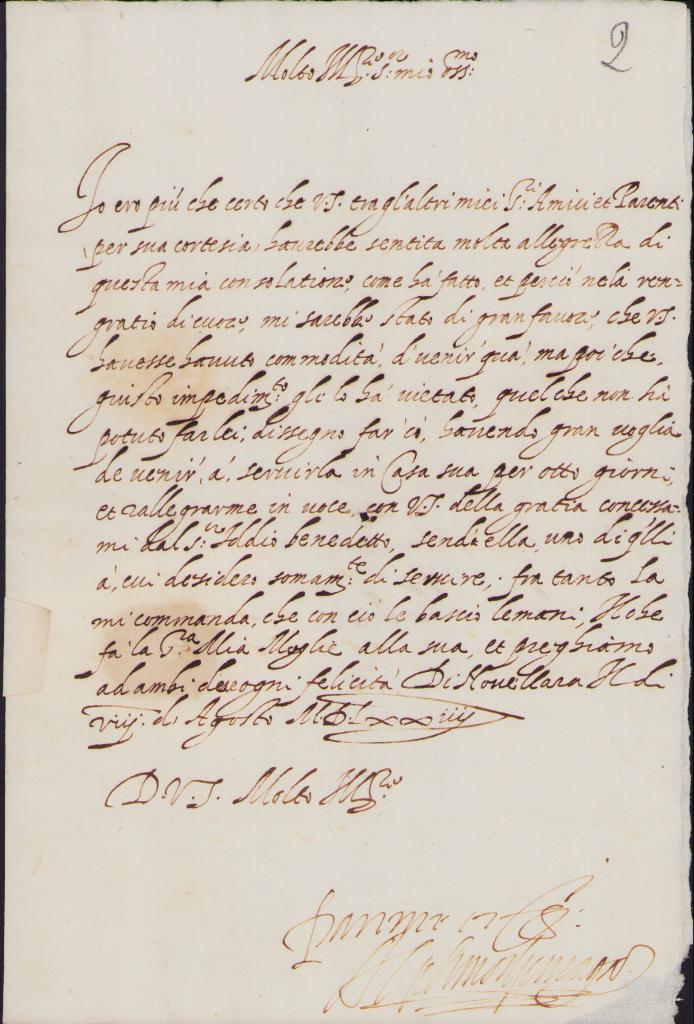 2
Molto Ill.re s.or mio oss.mo
Io ero più che certo che V.S. tra gl'altri miei S.ri Amici et Parenti
per sua cortesia, haurebbe sentita molta allegrezza di
questa mia consolatione, come ha' fatto, et perciò ne la ren=
gratio di cuore, mi sarebbe stato di gran favore, che V.S.
havesse havuto commodità, d'venir' quà, ma poi che,
giusto impedim.to gli lo ha' vietato, quel che non hà
potuto far lei, dissegno far io, havendo gran voglia
de venir', à, servirla in Casa sua per otto giorni,
et rallegrarme in voce, con V.S. della gratia concessa=
mi dal s.or Iddio benedetto, send'ella, uno di q'lli
à, cui desidero somam.te di servire, fra tanto la
mi commanda, che con ciò le bascio le mani, Il che
fà la S.ra Mia Moglie alla sua, et preghiamo
ad ambi due ogni felicità Di Novellara Il di
viij. de Agosto M.D.Lxxiiij
D. V. S. Molto Ill.re